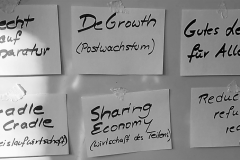 echt
auf
paratur
DeGrowth
(Postwachstum)
Gutes
für Alle
radle
Cradle
eislaufwirtschaft)
Sharing
Economy
(Wirtschaft des Teilens)
Reduc
refu